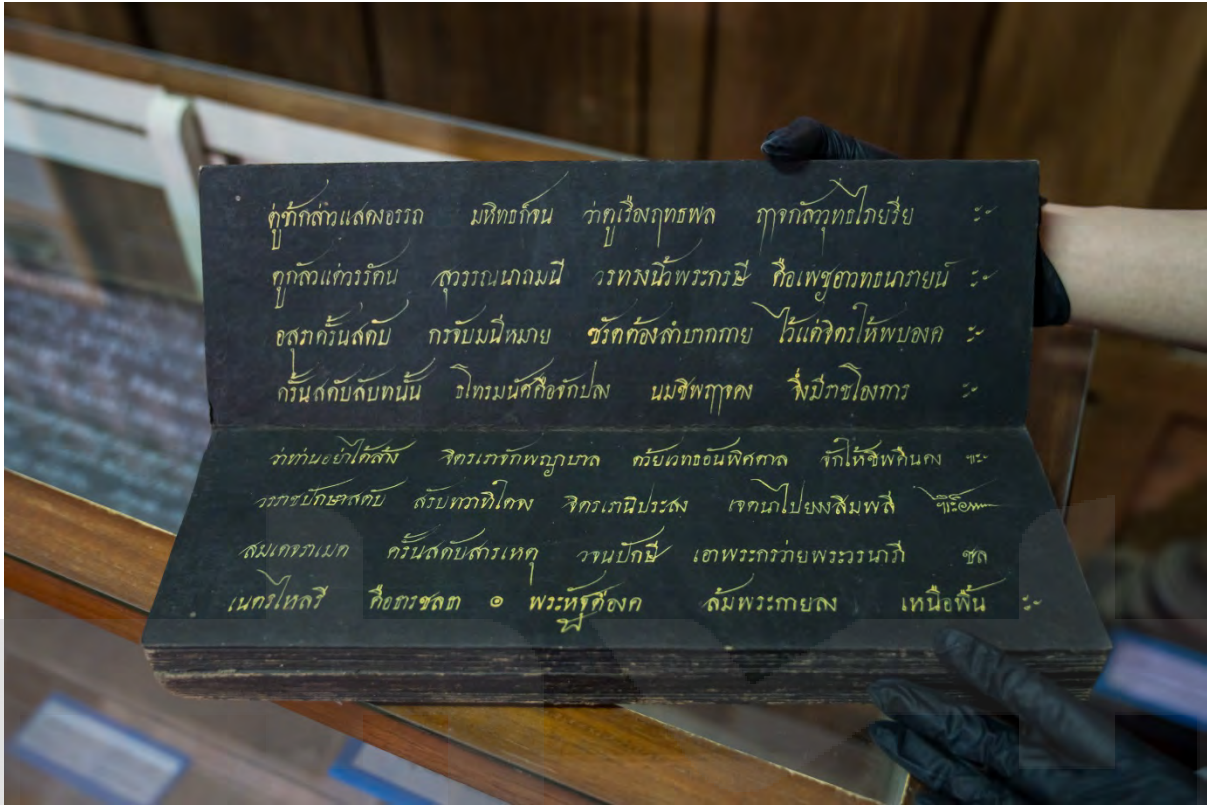 คู่ข้ากล่าวแสดงอรรถ มหิทธก็จน ว่าคูเรืองฤทธพล ฤๅจกลัววุทธไภยรีย ะ
คูกลัวแต่วรรัตน สุวรรณนาถมนี วรทรงนิ้วพระกรษี คือเพชอาวทธนารายน์ ะ
อสุราครั้นสดับ กรจับมนีหมาย ชรัตต้องลำบากกาย ไว้แต่จิตรให้พบองค ะ
ครั้นสดับสับทนั้น มนัศคือจักปลง ชิพฤๅจคง จึ่งมีราชโองการ ะ
ว่าท่านอย่าได้สั่ง จิตรเราจักพญาบาล ด้วยเวทธอันพิศดาล จักให้ชีพคืนคง
วรราชปักษาสดับ สรับ จิตรเรานิประสง เจตนาไปยงงสิมพลี
สมเดจราเมศ ครั้นสดับสารเหตุ วจนปักษี เอาพระกรว่ายพระวรนารี ชล
เนตรไหลรี คือธารชลธา ๏ พระหัฐคือองค ล้มพระกายลง เหนือพื้น ะ